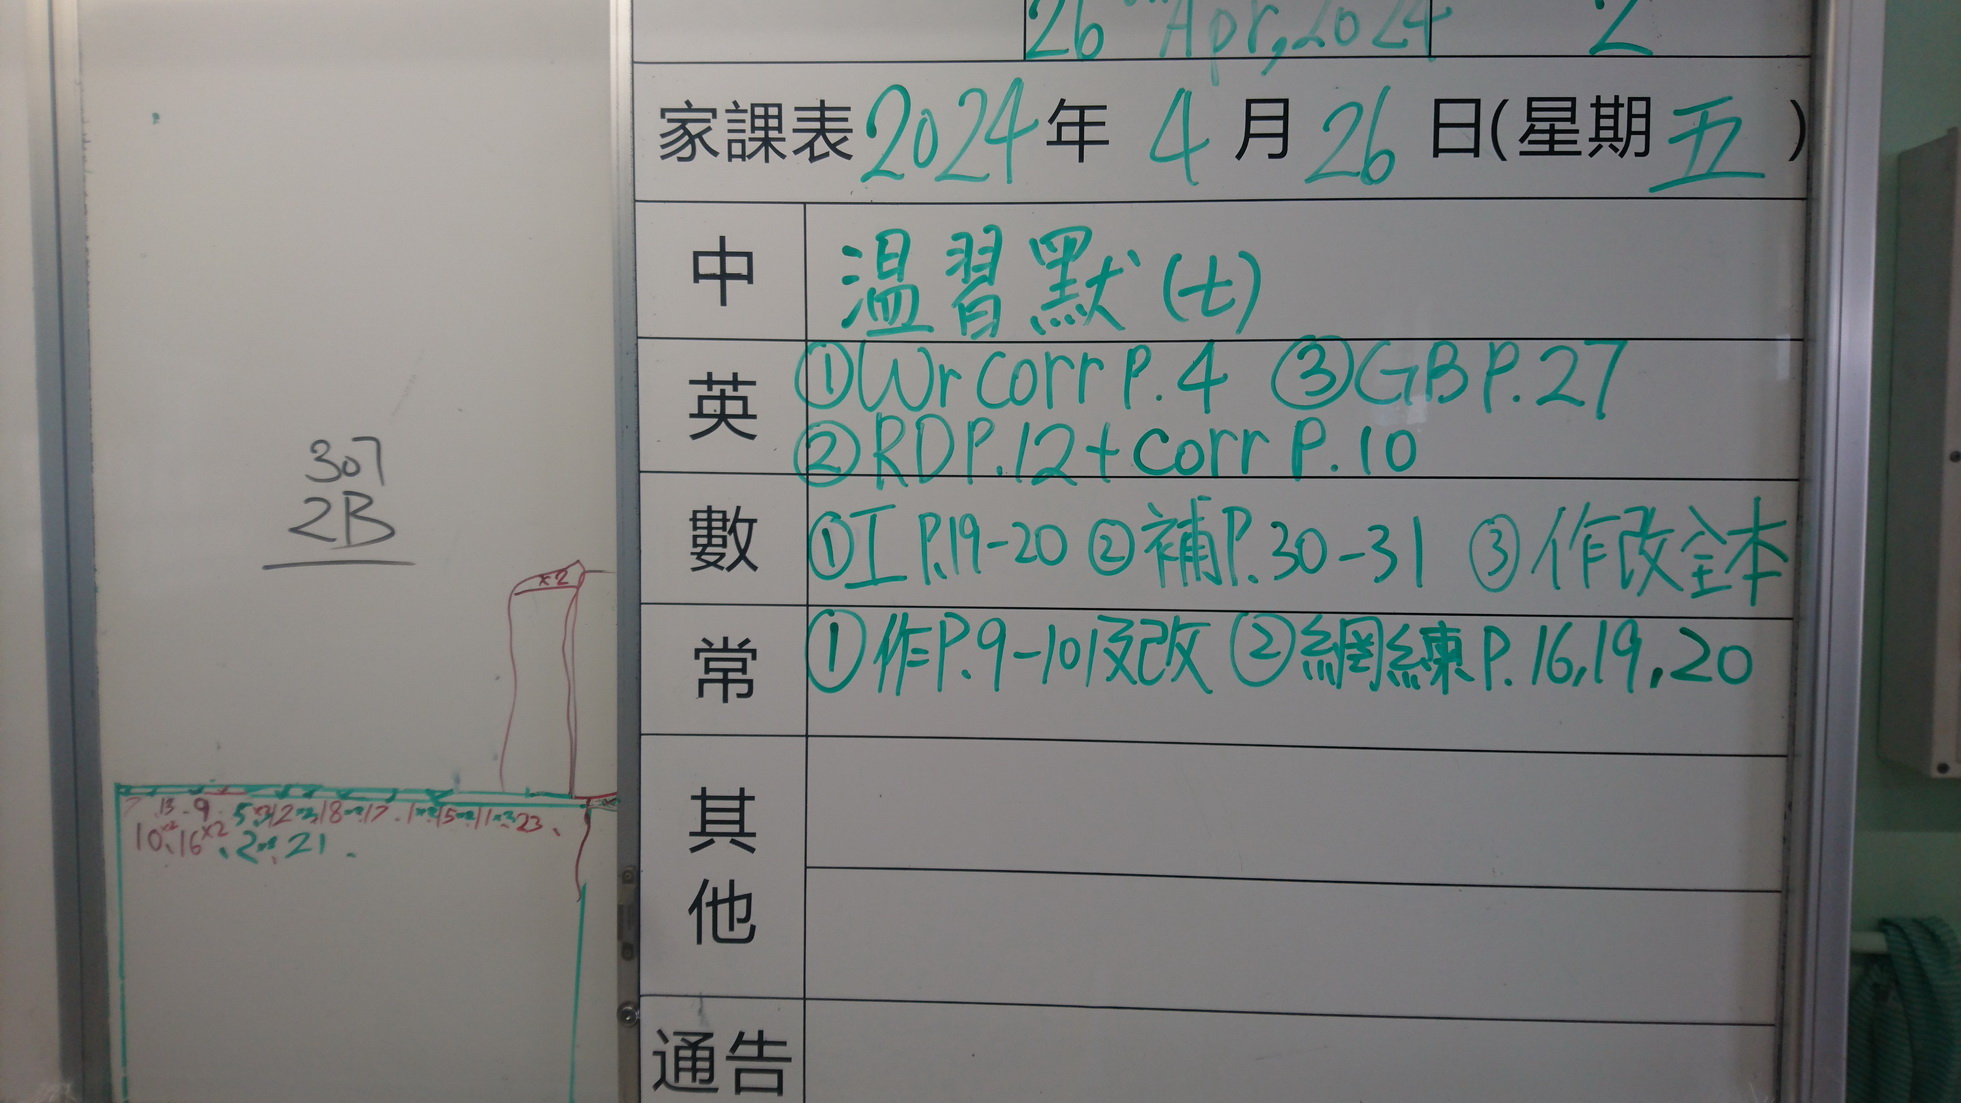 26 Apr, 2024 2
家課表 2024 年 4 月 26 日(星期 五 )
中 溫習默(七)
英 ①Wr Corr P.4 ③GB P.27
②RD P.12 + Corr P.10
數 ①工 P.19-20 ②補 P.30-31 ③作改全本
常 ①作P.9-10及改 ②網練P.16,19,20
其他
通告
307
2B
x2